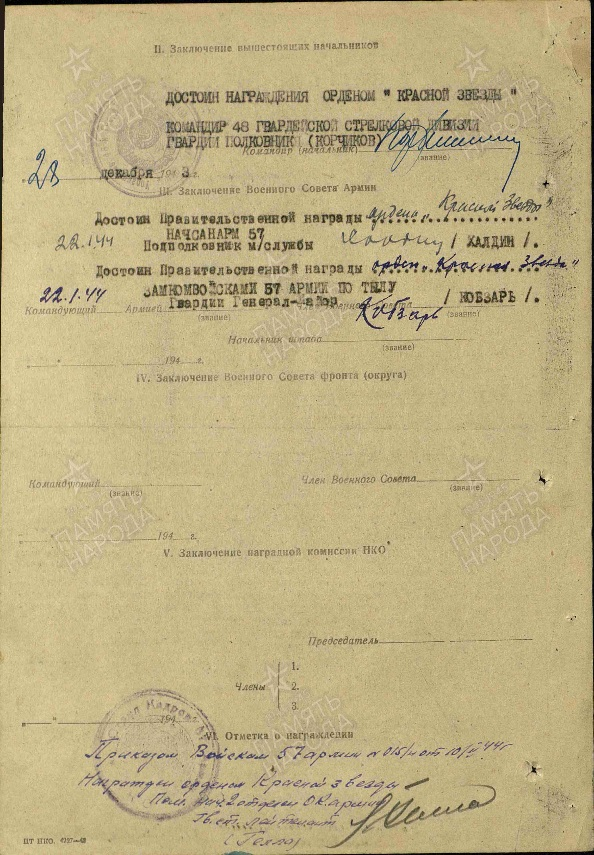 II. Заключение вышестоящих начальников
ДОСТОИН НАГРАЖДЕНИЯ ОРДЕНОМ " КРАСНОЙ ЗВЕЗДЫ "
КОМАНДИР 48 ГВАРДЕЙСКОЙ СТРЕЛКОВОЙ ДИВИЗИИ
ГВАРДИИ ПОЛКОВНИК (КОРЧИКОВ)
Командир (начальник)
(звание)
28 декабря 1943 г.
III. Заключение Военного Совета Армии
Достоин Правительственной награды ордена "Красной Звезды"
НАЧСАНАРМ 57
22.1.44 Подполковник м/службы / ХАЛДИН /.
Достоин Правительственной награды орден "Красная Звезда"
ЗАМКОМВОЙСКАМИ 57 АРМИИ ПО ТЫЛУ
22.1.44 Гвардии Генерал-Майор Кобзарь / КОБЗАРЬ /.
Командующий Армией
(звание) (звание)
Начальник штаба
(звание)
" " 194 г.
IV. Заключение Военного Совета фронта (округа)
Командующий Член Военного Совета
(звание) (звание)
" " 194 г.
V. Заключение наградной комиссии НКО
Председатель
1.
Члены 2.
3.
" " 194
VI. Отметка о награждении
Приказом Войскам 57 армии № 015/н от 10/II 44г
Награжден орденом Красной звезды
Пом. Нач. 2 отдела ОК армии
Гв. ст. лейтенант
ЦТ НКО.
ПАМЯТЬ НАРОДА
ПАМЯТЬ НАРОДА
ПАМЯТЬ НАРОДА
ПАМЯТЬ НАРОДА
ПАМЯТЬ НАРОДА
ПАМЯТЬ НАРОДА